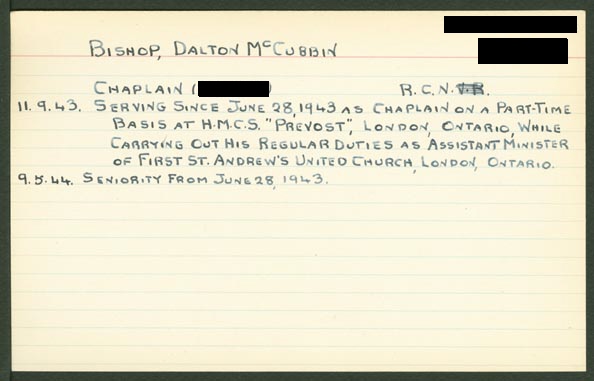 BISHOP, DALTON McCUBBIN
CHAPLAIN ( ) R.C.N. .R.
11.9.43. SERVING SINCE JUNE 28, 1943 AS CHAPLAIN ON A PART-TIME
BASIS AT H.M.C.S. "PREVOST", LONDON, ONTARIO, WHILE
CARRYING OUT HIS REGULAR DUTIES AS ASSISTANT MINISTER
OF FIRST ST. ANDREW'S UNITED CHURCH, LONDON, ONTARIO.
9.5.44. SENIORITY FROM JUNE 28, 1943.